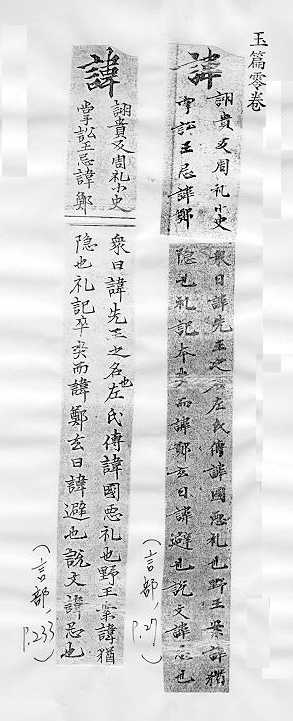 玉篇零卷
諱
詡貴反周礼小史
掌訟王忌諱鄭
衆曰諱先王之左氏傳諱國惡礼也野王案諱猶
隐也礼記卒哭而諱鄭玄曰諱避也說文諱忌也
(言部, P.27)
諱
詡貴反周礼小史
掌訟王忌諱鄭
衆曰諱先王之名也左氏傳諱國惡礼也野王案諱猶
隐也礼記卒哭而諱鄭玄曰諱避也說文諱忌也
(言部, P.233)